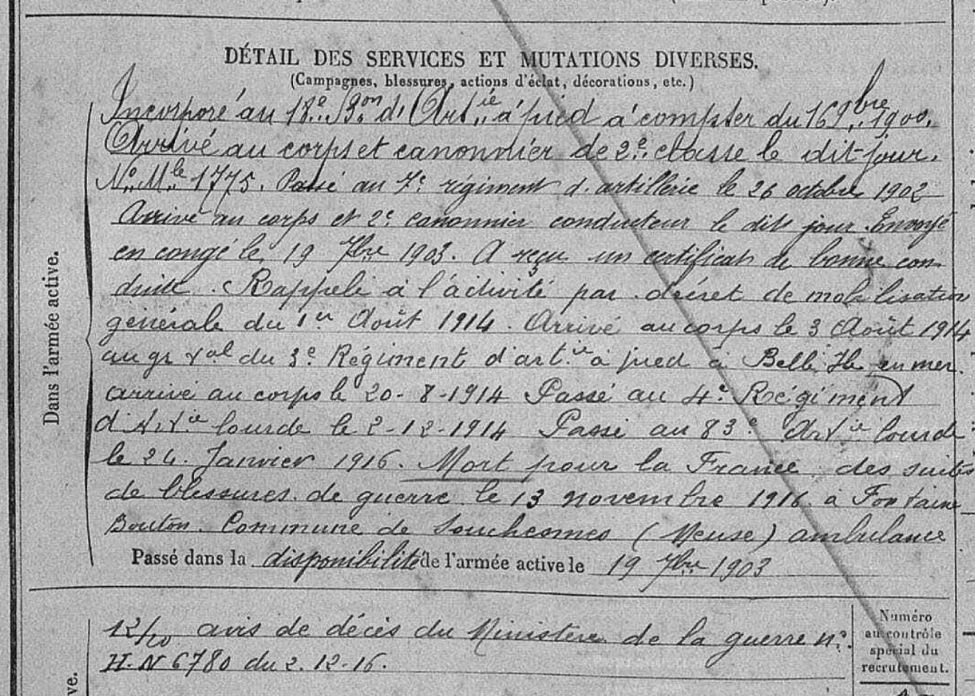 DÉTAIL DES SERVICES ET MUTATIONS DIVERSES.
(Campagnes, blessures, actions d'éclat, décorations, etc.)
Incorporé au 18e Bon d'Artie à pied à compter du 16 9bre 1900.
Arrivé au corps et canonnier de 2e classe le dit jour.
No Mle 1775. Passé au 7e régiment d'artillerie le 26 octobre 1902
Arrivé au corps et 2e canonnier conducteur le dit jour. Envoyé
en congé le 19 7bre 1903. A reçu un certificat de bonne con-
duite. Rappelé à l'activité par décret de mobilisation
générale du 1er Août 1914. Arrivé au corps le 3 Août 1914
au du 3e Régiment d'artie à pied à Belle Ile en mer.
arrivé au corps le 20-8-1914 Passé au 4e Régiment
d'Artie lourde le 2-12-1914 Passé au 83e Artie lourde
le 24 Janvier 1916. Mort pour la France des suites
de blessures de guerre le 13 novembre 1916 à Fontaine
Bouton Commune de Souchesmes (Meuse) ambulance
Passé dans la disponibilité de l'armée active le 19 7bre 1903
Dans l'armée active.
12/10 avis de décès du Ministère de la guerre no
H.N 6780 du 2.12-16.
Numéro
au contrôle
spécial du
recrutement.
ve.